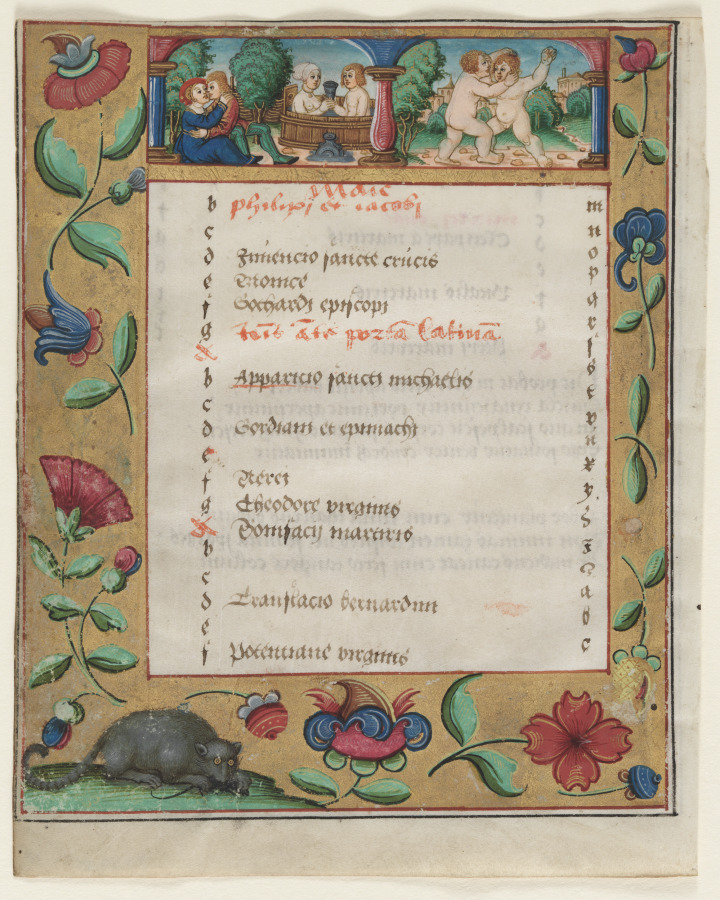 Maie
b philippi et iacobi m
c n
d Inuencio sancte crucis o
e p
f Gothardi episcopi q
g ante portā latinā r
A s
b Apparicio sancti michaelis
c t
d Gordiani et epimachi v
e u
f Nerei x
g Theodore virginis y
A Bonifacij martiris
b
c
d Translacio bernardini a
e b
f potenciane virginis c